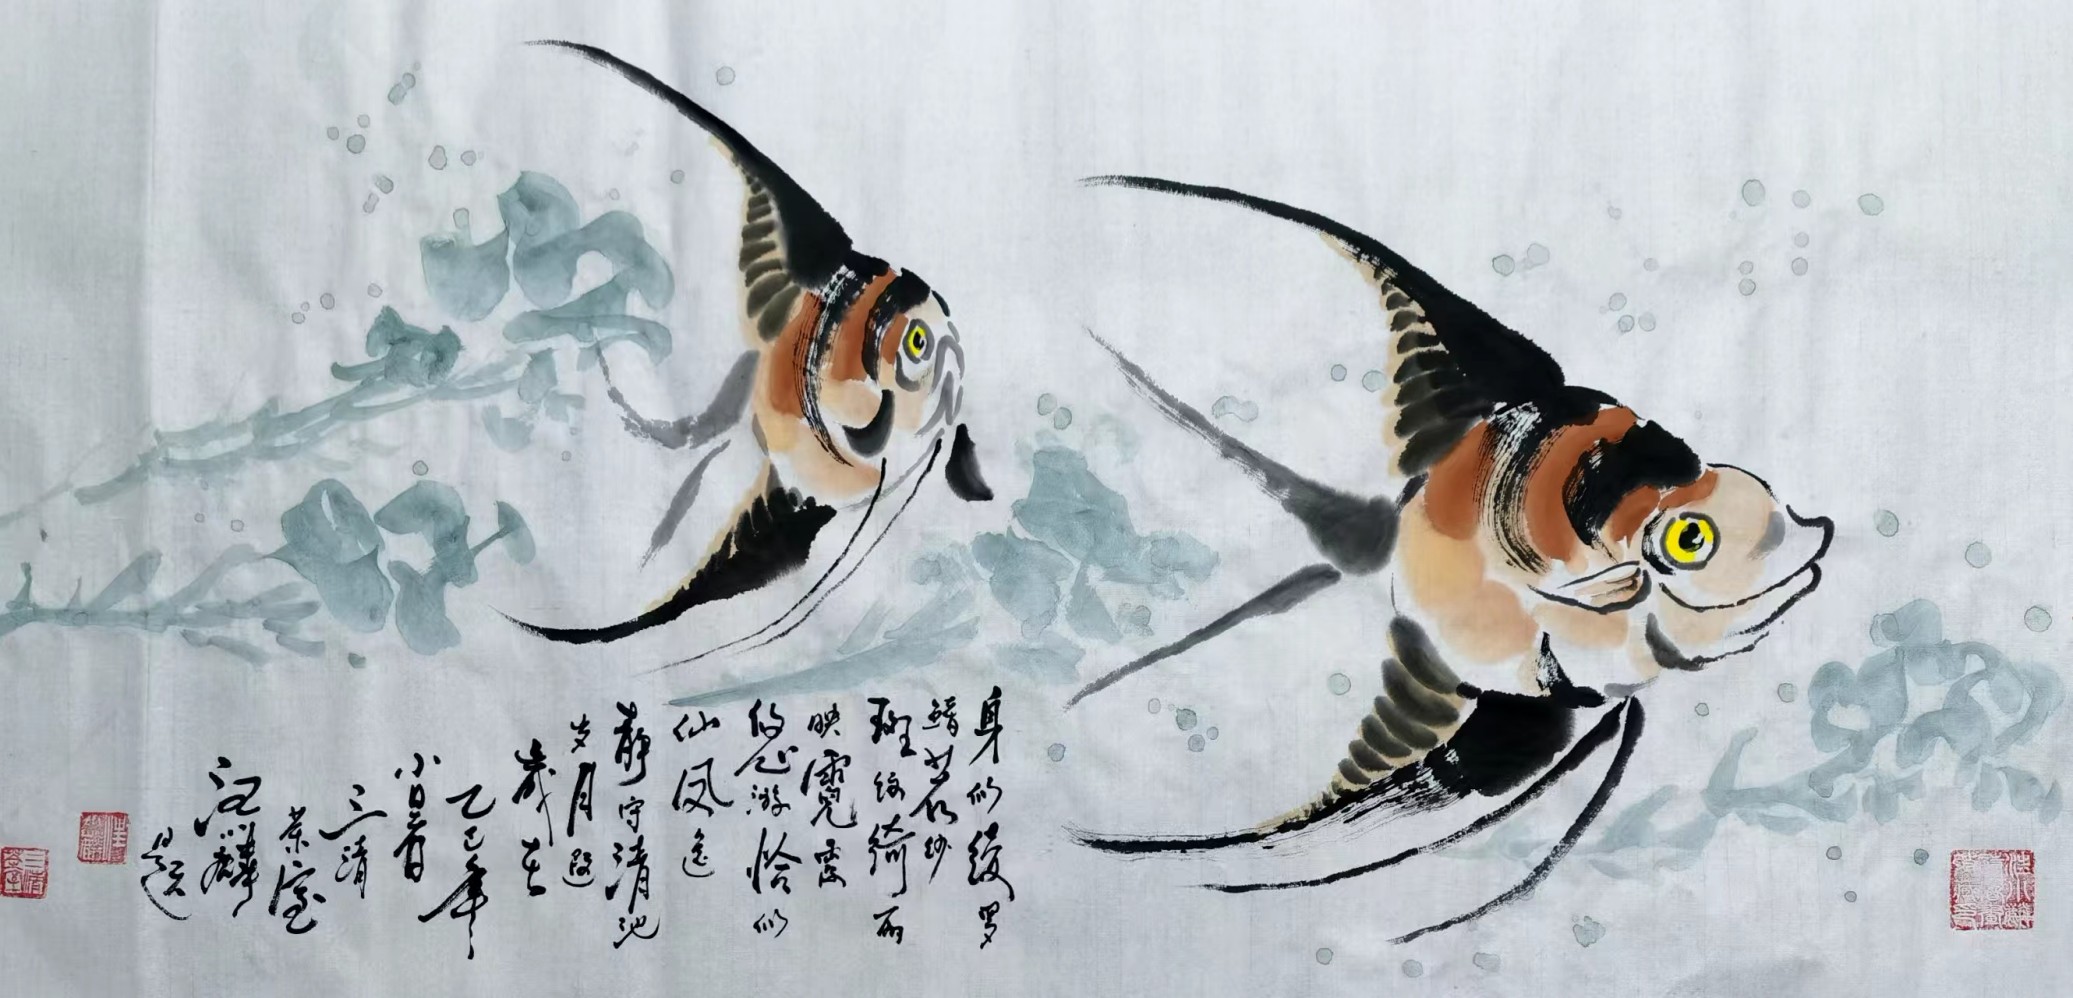 身似绫罗
鳍若纱
斑纹绮丽
映霓霞
悠悠游恰似
仙凤逸
静守清池
岁月遐
岁在
乙巳年
小暑
三清
茶室
汪麟
题